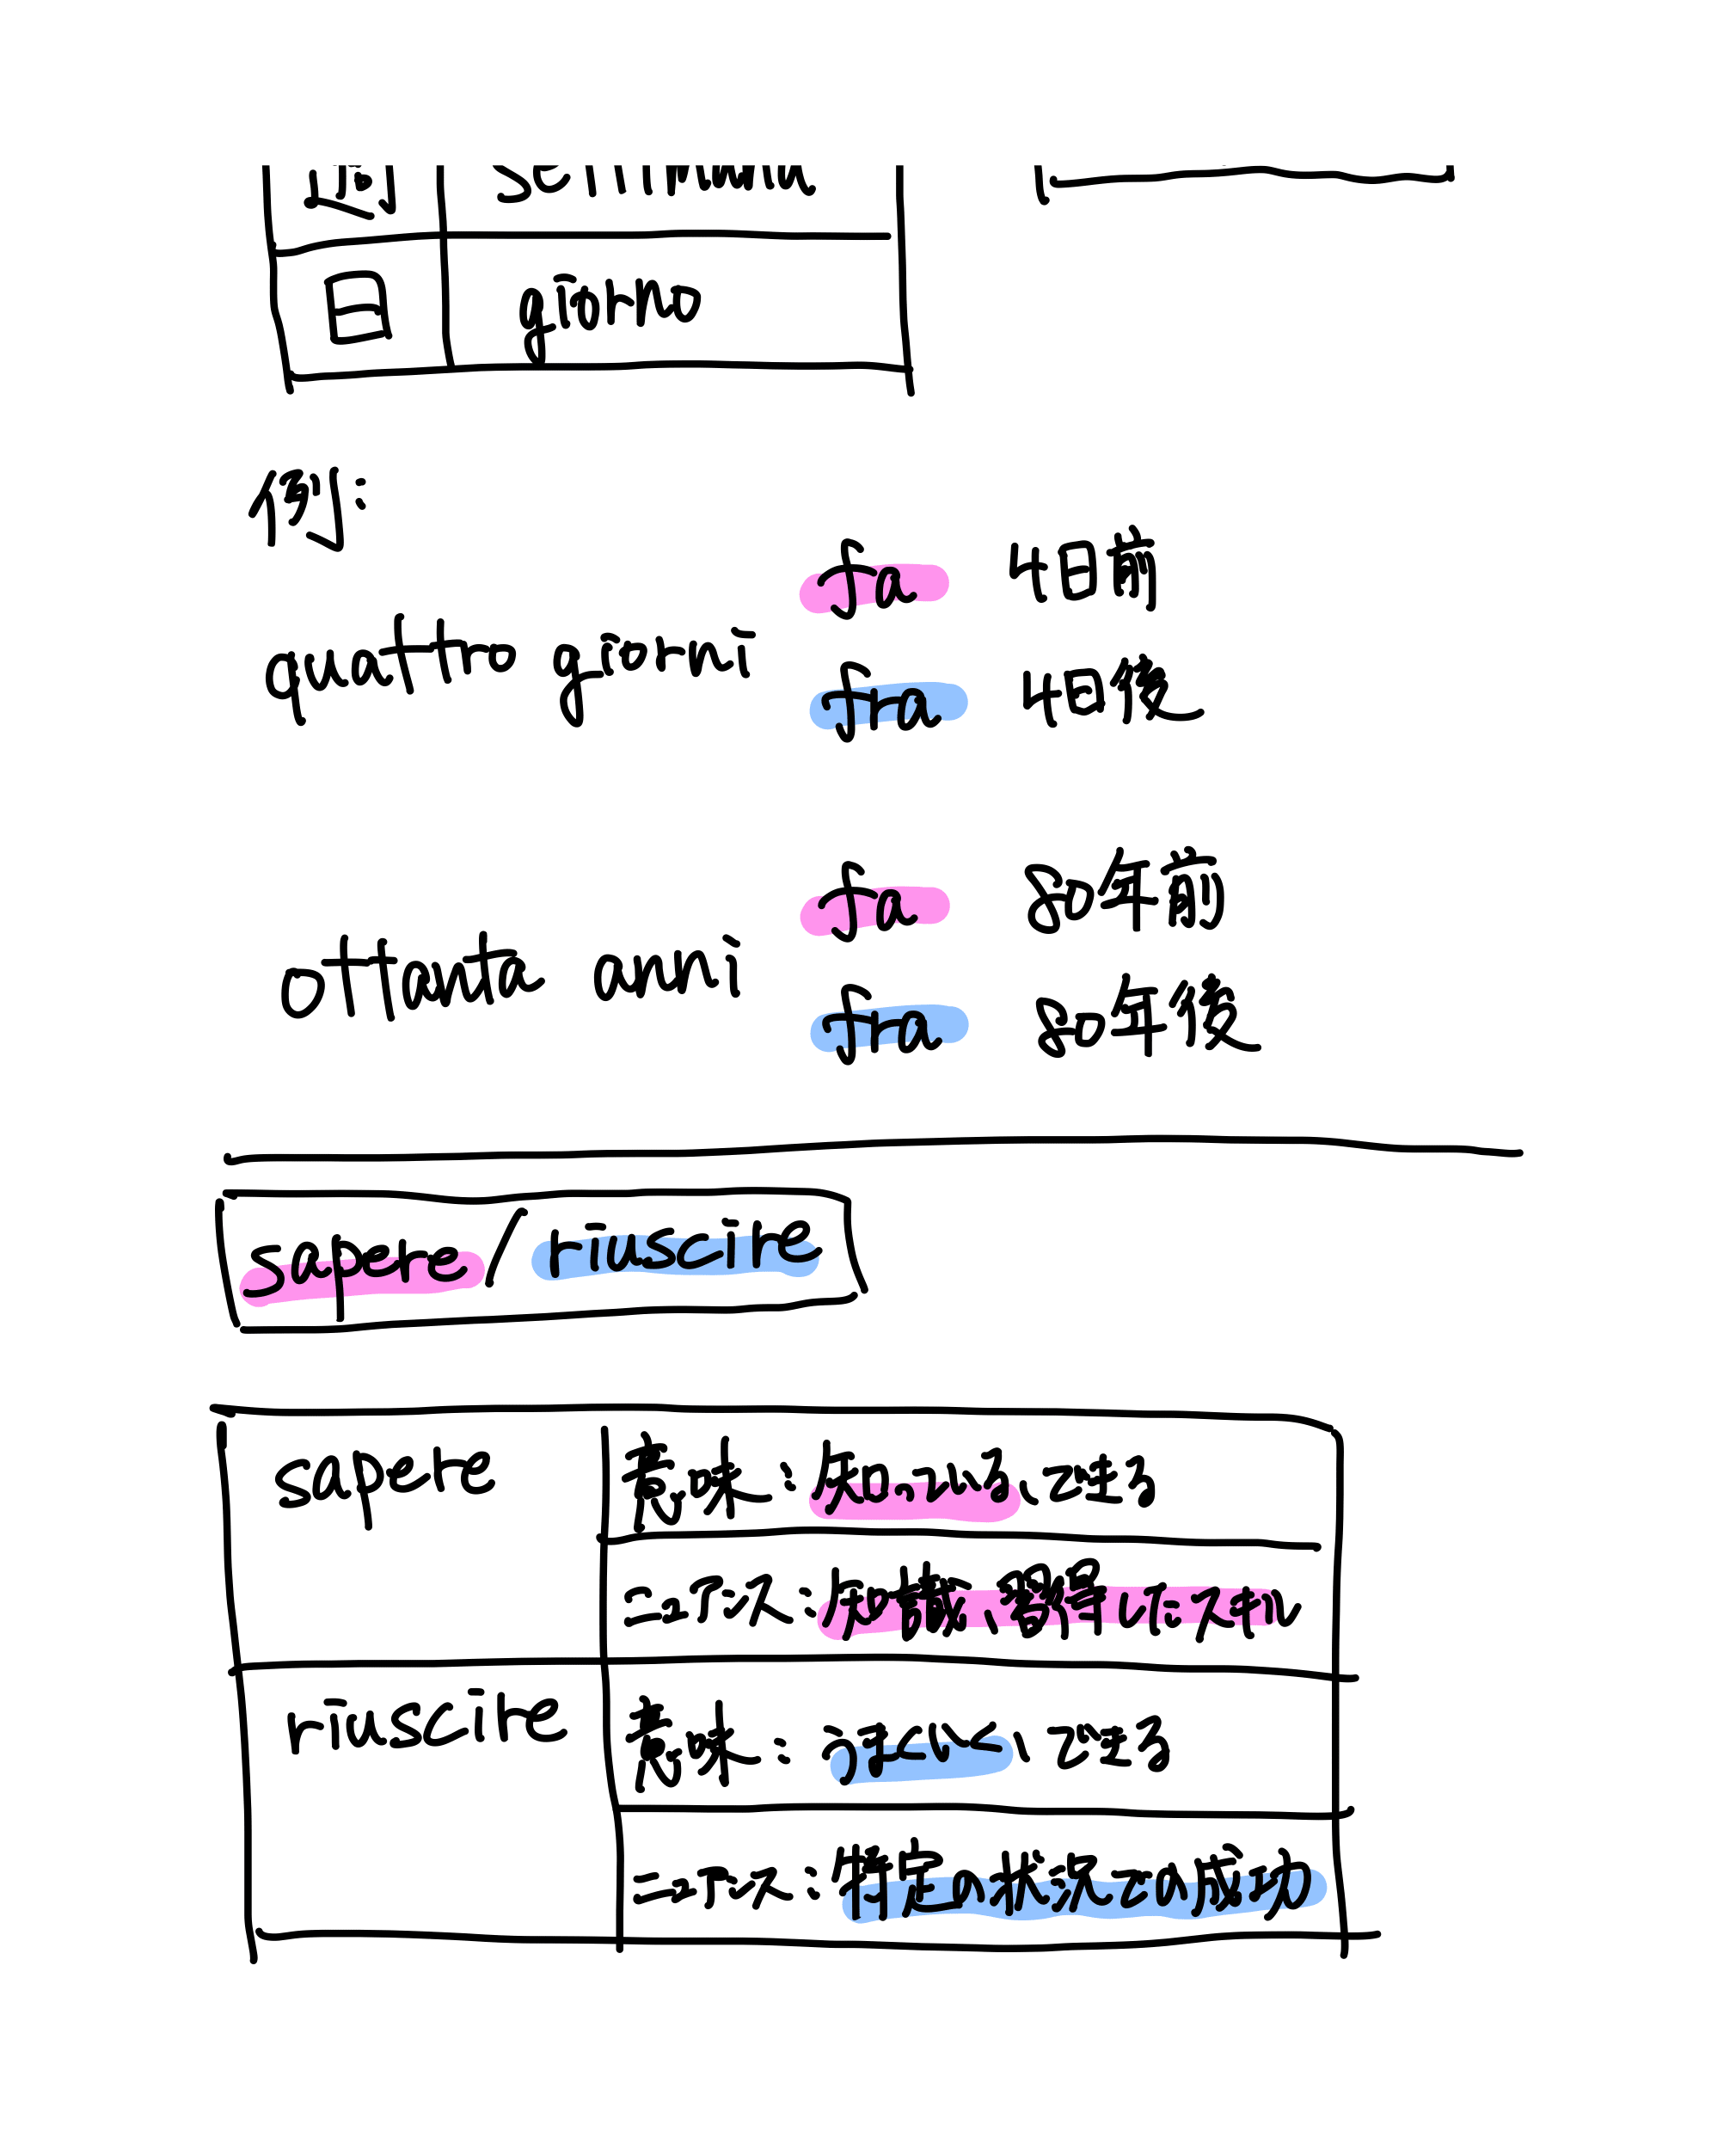 週 settimana
日 giorno
例:
quattro giorni
fa 4日前
fra 4日後
ottanta anni
fa 80年前
fra 80年後
sapere/riuscire
sapere
意味:知っている、できる
ニュアンス:知識、習得した能力
riuscire
意味:うまくいく、できる
ニュアンス:特定の状況での成功